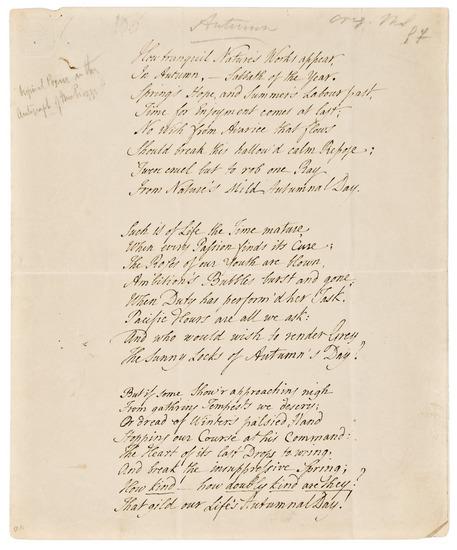 Autumn
Orig. Ms
87
Original Poem in the
Autograph of Mrs Piozzi
How tranquil Nature's Works appear,
In Autumn, — Sabbath of the Year.
Spring's Hope, and Summer's Labour past,
Time for Enjoyment comes at last;
No wish from Avarice that flows
Should break this hallow'd calm Repose;
Twere cruel but to rob one Ray
From Nature's Mild Autumnal Day.
Such is of Life the Time mature
When every Passion finds its Cure;
The Roses of our Youth are flown,
Ambition's Bubbles burst and gone;
When Duty has perform'd her Task.
Pacific Hours are all we ask:
And who would wish to render Grey
The Sunny Locks of Autumn's Day?
But if some Show'r approaching nigh
From gathring Tempests we descry;
Or dread of Winters palsied Hand
Stopping our Course at his Command:
The Heart of its last Drops to wring,
And break the insuppressive Spring;
How kind! — how doubly kind are they!
That gild our Life's Autumnal Day!